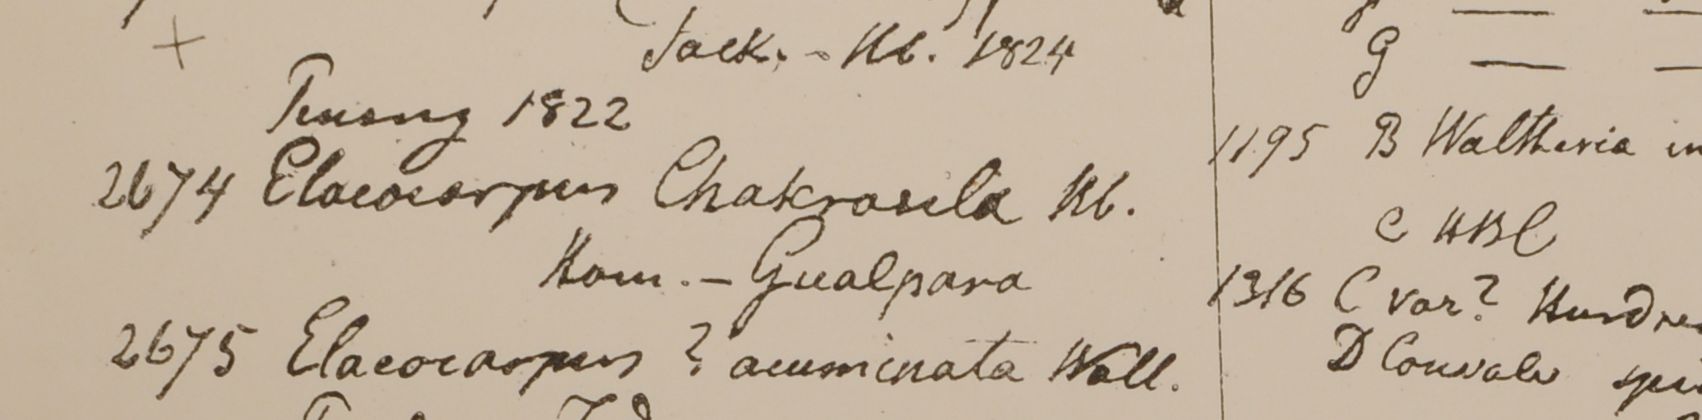 Jack. - Hb. 1824
Penang 1822
2674 Elaeocarpus Chakrasila Hb.
Ham. - Gualpara
2675 Elaeocarpus ? acuminata Wall.
G — —
1195 B Waltheria in
C HBC
1316 C var? Hurdw
D Convalv